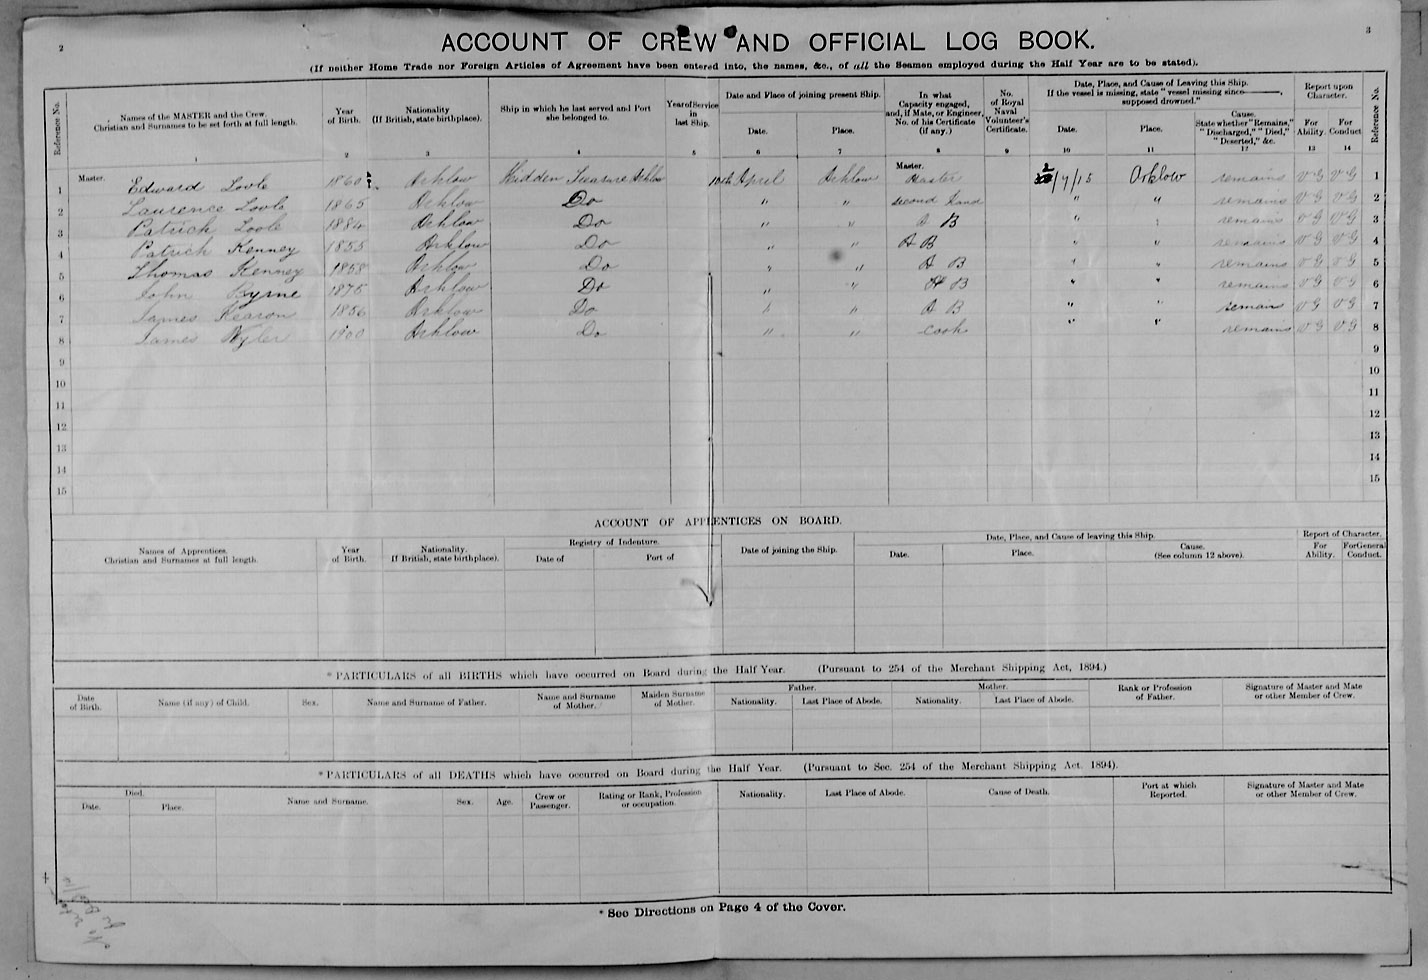 2
3
ACCOUNT OF CREW AND OFFICIAL LOG BOOK.
(If neither Home Trade nor Foreign Articles of Agreement have been entered into, the names, &c., of all the Seamen employed during the Half Year are to be stated).
Reference No.
Names of the MASTER and the Crew.
Christian and Surnames to be set forth at full length.
1
Year of Birth.
2
Nationality
(If British, state birthplace).
3
Ship in which he last served and Port she belonged to.
4
Year of Service in last Ship.
5
Date and Place of joining present Ship.
Date.
6
Place.
7
In what Capacity engaged, and, if Mate, or Engineer, No. of his Certificate (if any.)
8
No. of Royal Naval Volunteer's Certificate.
9
Date, Place, and Cause of Leaving this Ship.
If the vessel is missing, state "vessel missing since———, supposed drowned."
Date.
10
Place.
11
Cause.
State whether "Remains," "Discharged," "Died," "Deserted," &c.
12
Report upon Character.
For Ability.
13
For Conduct
14
Reference No.
1 Master. Edward 1860 Arklow Hidden Treasure Arklow 10th April Arklow Master. Master /7/15 Arklow remains V G V G 1
2 Laurence 1865 Arklow Do " " second hand " " remains V G V G 2
3 Patrick 1884 Arklow Do " " A B " " remains V G V G 3
4 Patrick Kenney 1855 Arklow Do " " A B " " remains V G V G 4
5 Thomas Kenney 1858 Arklow Do " " A B " " remains V G V G 5
6 John Byrne 1875 Arklow Do " " A B " " remains V G V G 6
7 James Kearon 1856 Arklow Do " " A B " " remains V G V G 7
8 James Wyler 1900 Arklow Do " " cook " " remains V G V G 8
9 9
10 10
11 11
12 12
13 13
14 14
15 15
ACCOUNT OF APPRENTICES ON BOARD.
Names of Apprentices.
Christian and Surnames at full length.
Year of Birth.
Nationality.
If British, state birthplace).
Registry of Indenture.
Date of
Port of
Date of joining the Ship.
Date, Place, and Cause of leaving this Ship.
Date.
Place.
Cause.
(See column 12 above).
Report of Character.
For Ability.
For General Conduct.
* PARTICULARS of all BIRTHS which have occurred on Board during the Half Year. (Pursuant to 254 of the Merchant Shipping Act, 1894.)
Date of Birth.
Name (if any) of Child.
Sex.
Name and Surname of Father.
Name and Surname of Mother.
Maiden Surname of Mother.
Father.
Nationality.
Last Place of Abode.
Mother.
Nationality.
Last Place of Abode.
Rank or Profession of Father.
Signature of Master and Mate or other Member of Crew.
* PARTICULARS of all DEATHS which have occurred on Board during the Half Year. (Pursuant to Sec. 254 of the Merchant Shipping Act. 1894).
Died.
Date.
Place.
Name and Surname.
Sex.
Age.
Crew or Passenger.
Rating or Rank, Profession or occupation.
Nationality.
Last Place of Abode.
Cause of Death.
Port at which Reported.
Signature of Master and Mate or other Member of Crew.
* See Directions on Page 4 of the Cover.